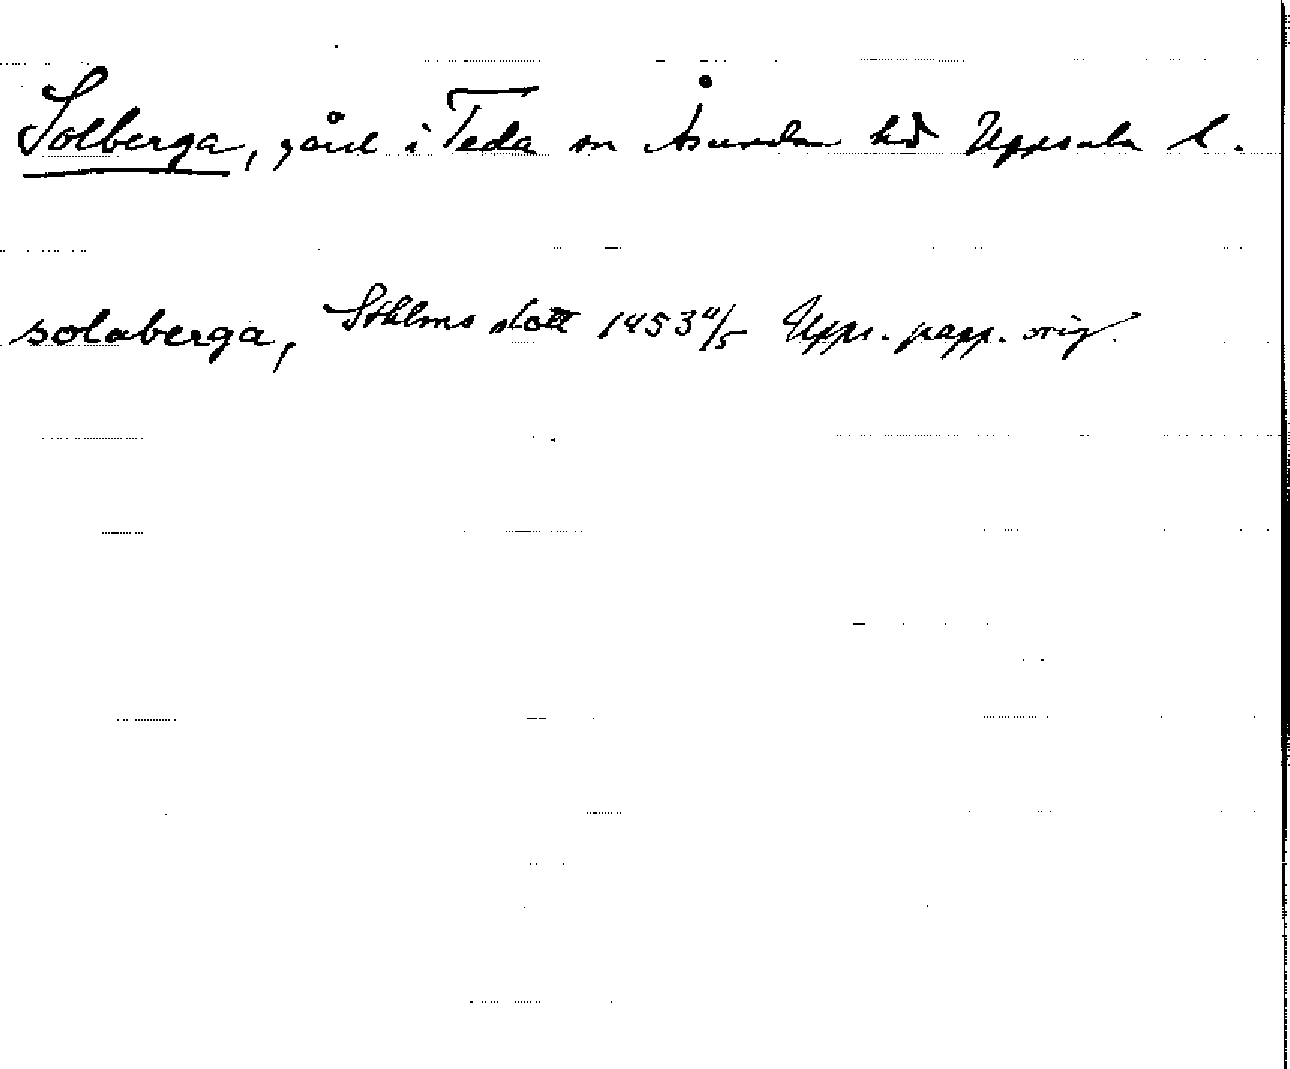 Solberga, gård i Teda sn Åsunda hd Uppsala l.
solaberga, Sthlms slott 1453 4/5 Upps. papp. orig.